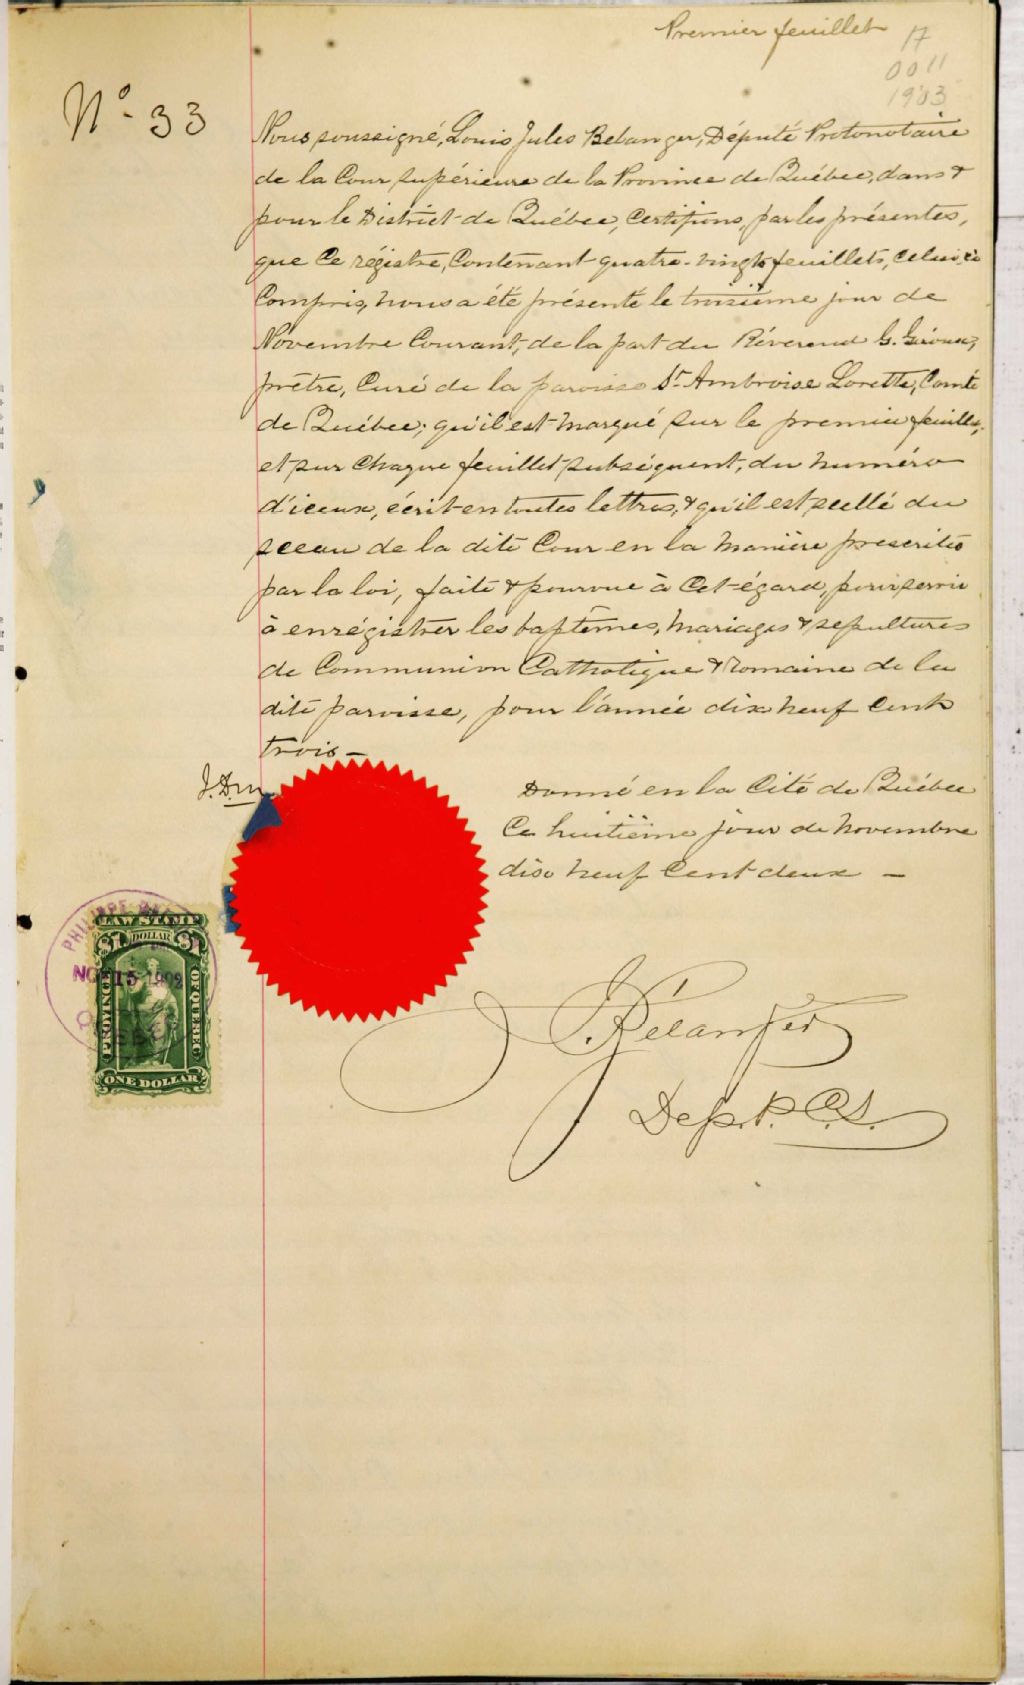 Premier feuillet
17
0011
1903
No. 33
Nous soussigné, Louis Jules Belanger, Député Protonotaire
de la Cour supérieure de la Province de Québec, dans &
pour le District de Québec, Certifions, par les présentes,
que ce régistre, Contenant quatre-vingts feuillets, celui ci
Compris, nous a été présenté le troisième jour de
Novembre Courant, de la part du Révérend G. Giroux,
prêtre, Curé de la paroisse St Ambroise Lorette, Comté
de Québec; qu'il est marqué sur le premier feuillet,
et sur chaque feuillet subséquent, du numéro
d'iceux, écrit en toutes lettres, & qu'il est scellé du
sceau de la dite Cour en la manière prescrite
par la loi, faite & pourvue à cet égard, pour servir
à enrégistrer les baptêmes, mariages & sepultures
de Communion Catholique & Romaine de la
dite paroisse, pour l'année dix neuf cent
trois —
Donné en la Cité de Québec
Ce huitième jour de Novembre
dix neuf Cent deux —
PHILIPPE
LAW STAMP
$1 DOLLAR $1
NOV 15 1902
PROVINCE OF QUEBEC
QUEBEC
ONE DOLLAR
J. Belanger
Dep. P. C. S.